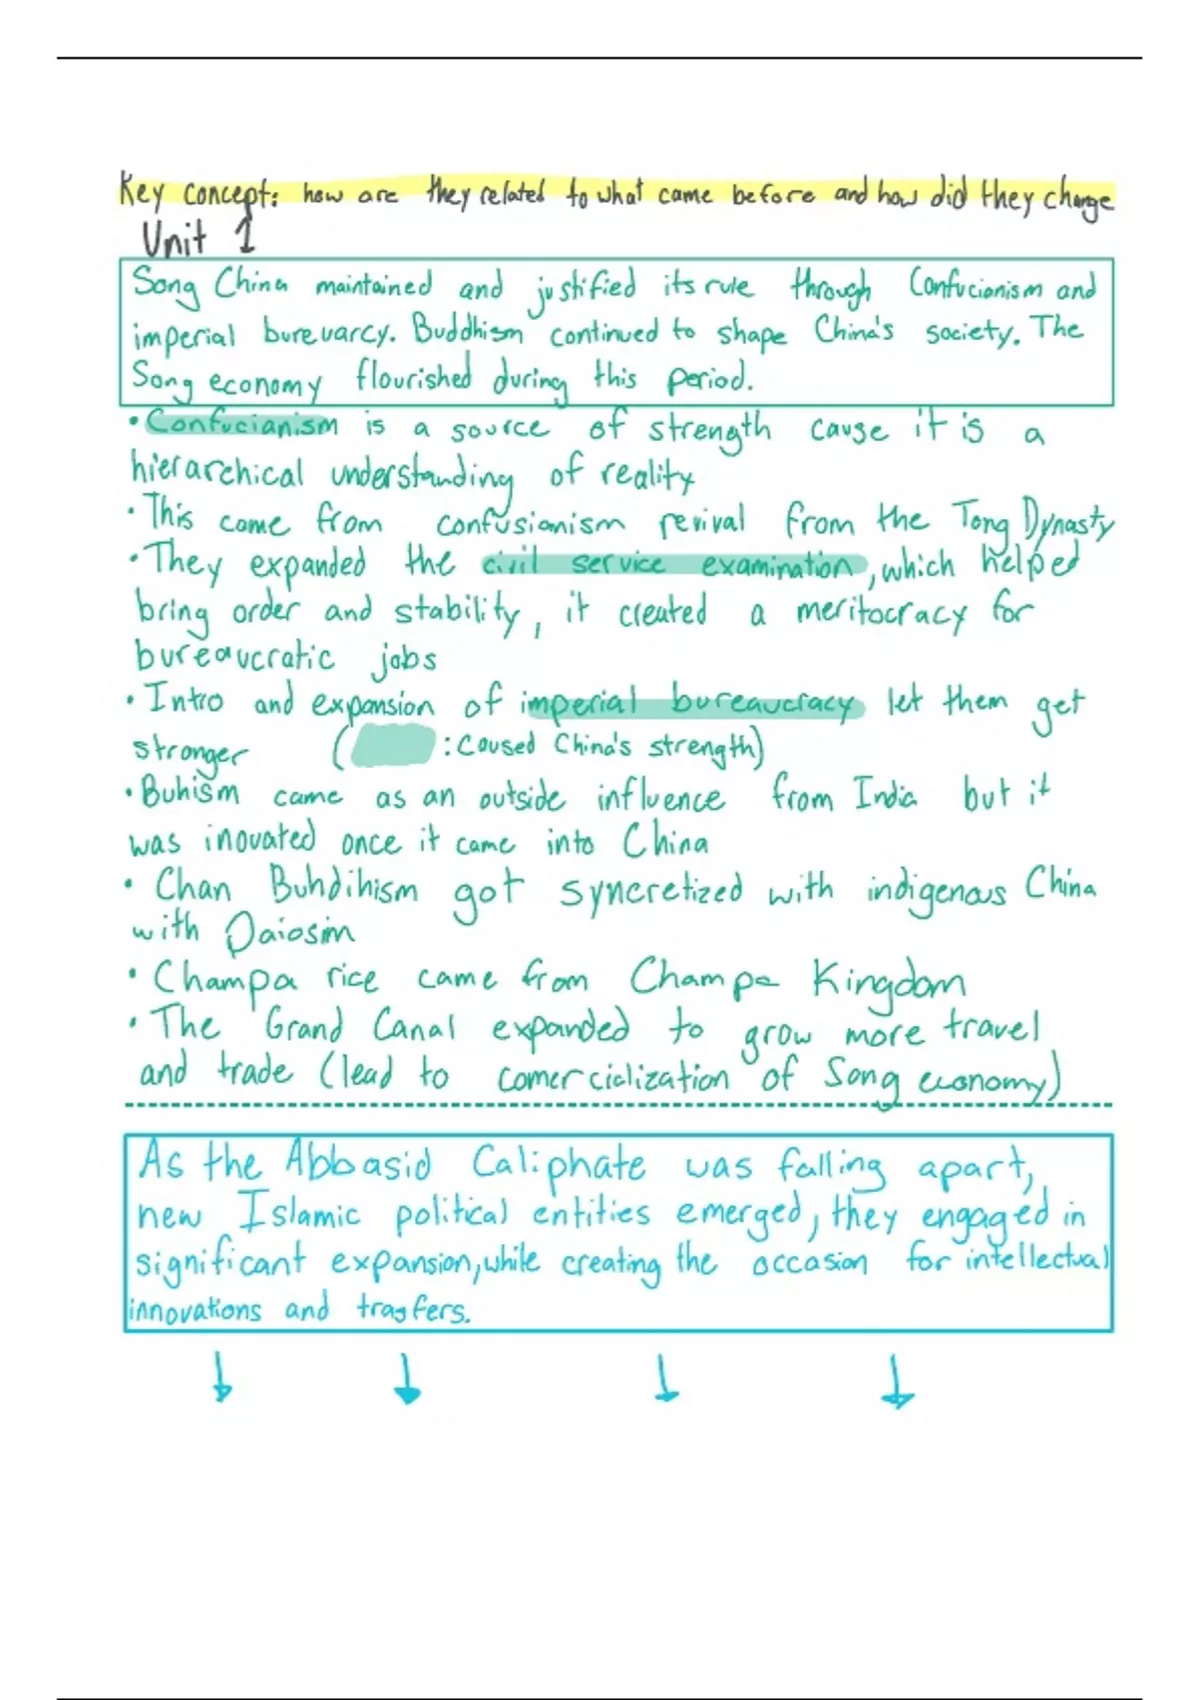 Key concept: how are they related to what came before and how did they change
Unit 1
Song China maintained and justified its rule through Confucianism and
imperial bureuarcy. Buddhism continued to shape China's society. The
Song economy flourished during this period.
• Confucianism is a source of strength cause it is a
hierarchical understanding of reality
• This come from confusionism revival from the Tong Dynasty
• They expanded the civil service examination, which helped
bring order and stability, it created a meritocracy for
bureaucratic jobs
• Intro and expansion of imperial bureaucracy let them get
stronger ( : Caused China's strength)
• Buhism came as an outside influence from India but it
was inovated once it came into China
• Chan Buhdihism got syncretized with indigenous China
with Daiosim
• Champa rice came from Champa Kingdom
• The Grand Canal expanded to grow more travel
and trade (lead to comercialization of Song economy)
As the Abbasid Caliphate was falling apart,
new Islamic political entities emerged, they engaged in
significant expansion, while creating the occasion for intellectual
innovations and trasfers.